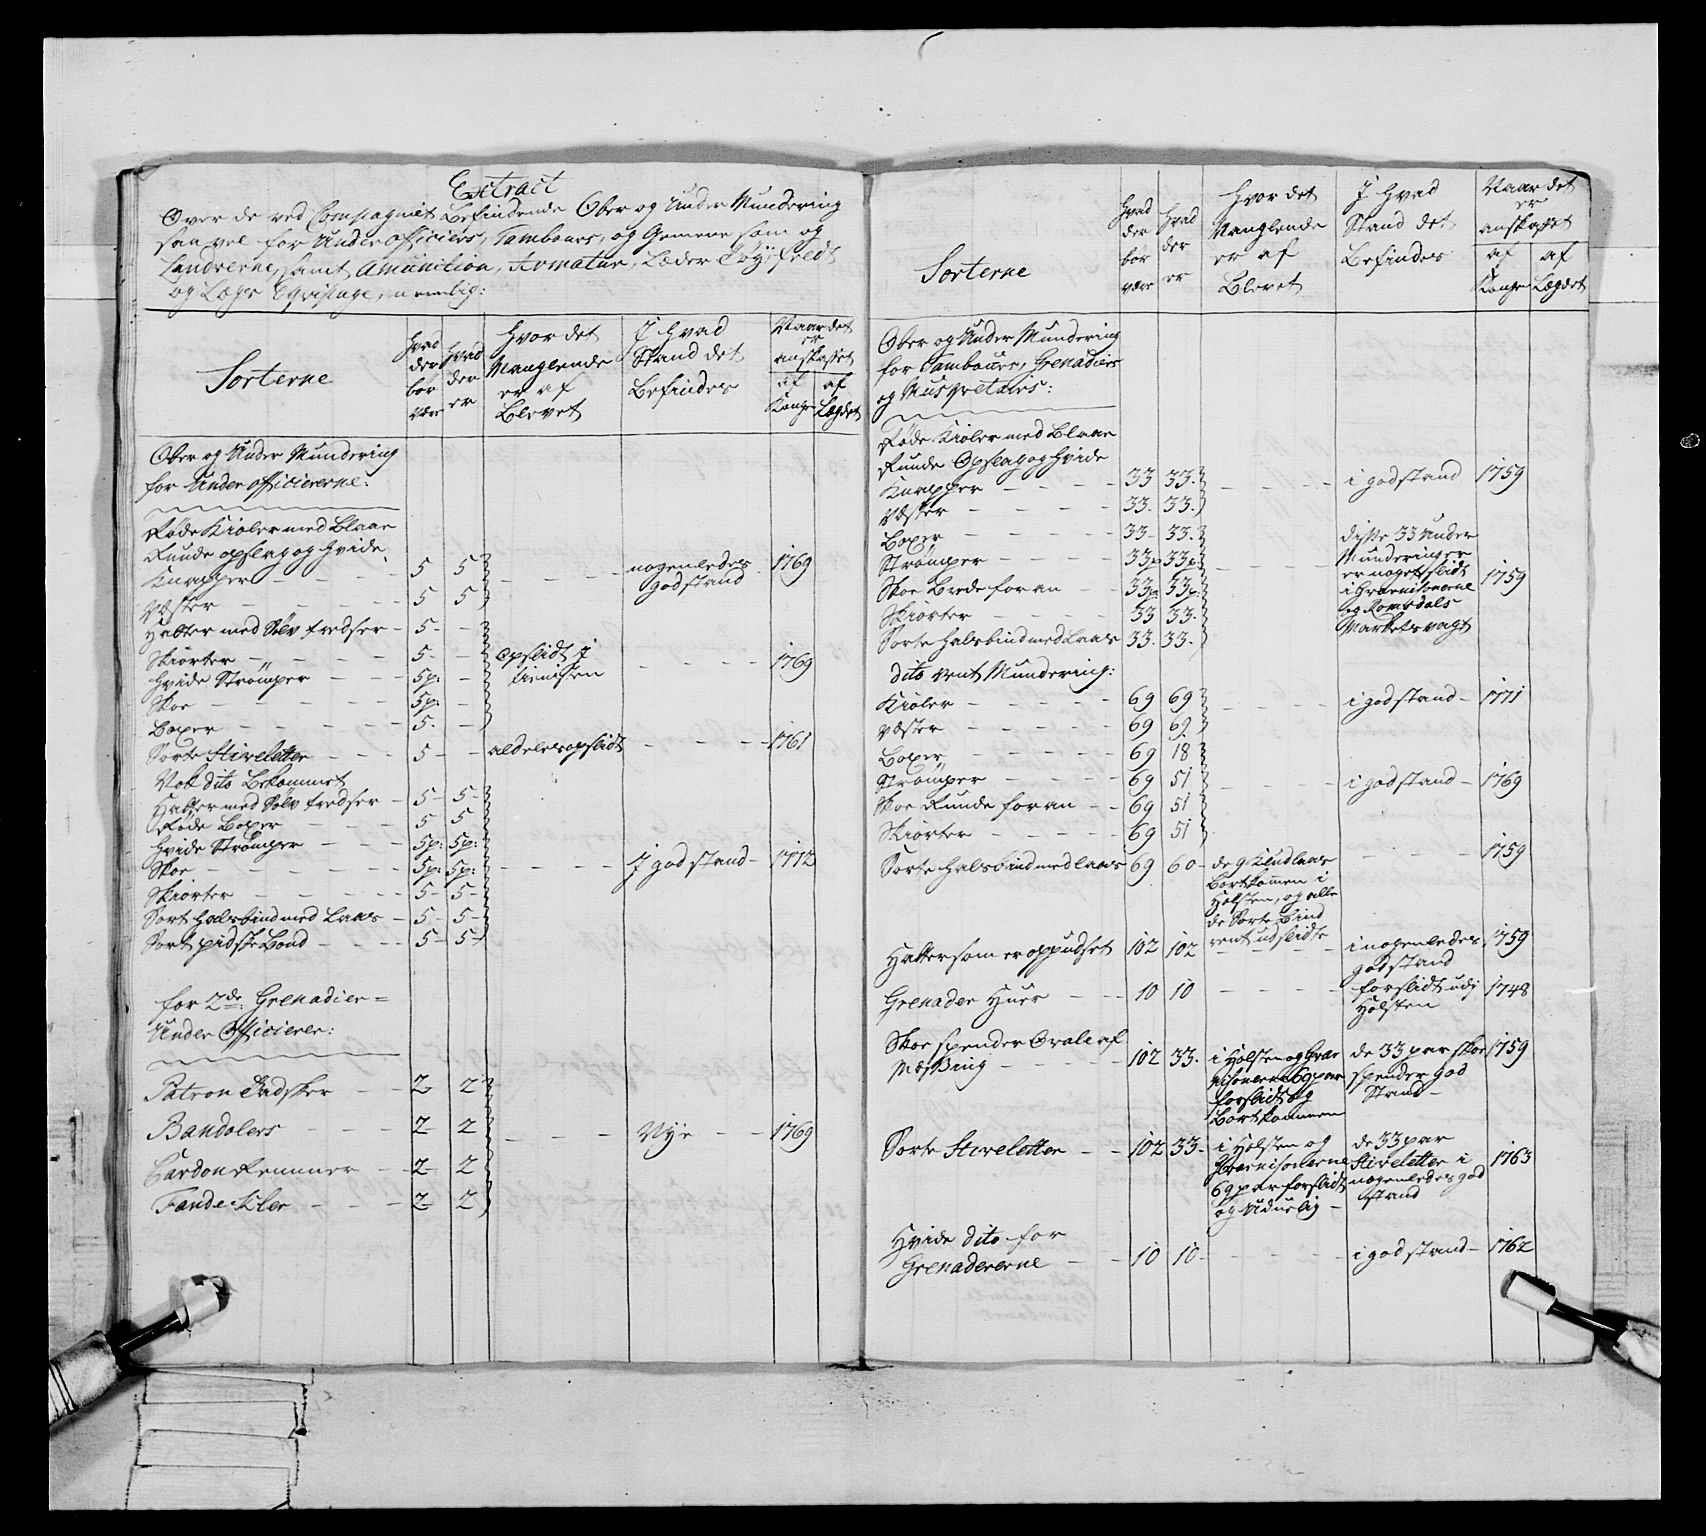 Extract
Over de ved Compagniet Befindende Ober og Under Mundering
saa vel for Under officiers, Tambours, og Gemene som og
Landverne, samt Amunition, Armatur, Læder Töy, feldt
og Læger Eqvipage, nemlig:
Sorterne
Hvad der bör være
Hvad der er
Hvor det Manglende er af Blevet
I Hvad Stand det Befindes
Naar det er anskaffet
af Kongen
af Lægdet
Ober og Under Mundering
for Under officiererne:
Röde Kioler med Blaae
Runde opslag og Hvide
Knapper - - - 5 5 - - - nogenledes god stand 1769
Væster - - - 5 5
Hatter med Sölv tredser - 5 -
Skiorter - - - 5 - - opslidt I tienisten - - - 1769
Hvide Strömper - - - 5p: -
Skoe - - - 5p: -
Boxer - - - 5 -
Sorte Stiveletter - 5 - - aldeles opslidt - - - 1761
Nok dito Bekommet
Hatter med Sölv tredser - 5 - 5 -
Röde Boxer - - - 5 5
Hvide Strömper - - - 5p: 5p:
Skoe - - - 5p: 5p: - - - I god stand - 1772
Skiorter - - - 5 - 5 -
Sort Halsbind med Laas - 5 - 5 -
Sort pidske Bond - - - 5 - 5 -
for 2de Grenadier=
Under Officierer:
Patron Tadsker - 2 - 2
Bandolers - - - 2 - 2 - - - Nÿe - - 1769
Cardon Remmer - - 2 - 2
Fande Kler - - - 2 - 2
Sorterne
Hvad der bör være
Hvad der er
Hvor det Manglende er af Blevet
I Hvad Stand det Befindes
Naar det er anskaffet
af Kongen
af Lægdet
Ober og Under Mundering
for Tambours, Grenadiers
og Musqvetairs:
Röde Kioler med Blaae
Runde Opslag og Hvide
Knapper - - - 33 33. - - - i god stand 1759
Væster - - - 33. 33.
Boxer - - - 33 - 33.
Strömper - - - 33p 33p: - - - disse 33 Under Munderinger er noget slidt i Guarnisonerne og Romsdals Markets vagt 1759
Skoe Brede for an - - 33p 33p.
Skiorter - - - 33 33.
Sorte Halsbind med Laas 33. 33.
dito nent Mundering:
Kioler - - - 69 69 - - - i god stand - 1771
Væster - - - 69 69.
Boxer - - - 69 18
Strömper - - - 69 51 - - - i god stand - 1769
Skoe Runde for an - - 69 51
Skiorter - - - 69 51
Sorte Halsbind med laas 69 60 - de 9 Klud laas Bortkommen i Holsten, og alle de Sorte Bind rent udslidte - - - 1759
Hatter som er oppudset 102 102 - - - i nogenledes god stand 1759
Grenader Huer - - - 10 10 - - - forslidt udj Holsten 1748
Skoe spender Orale af
Messing - - - 102 33. i Holsten og Guarnisonerne 69 par forslidt og Bortkommen de 33 par skoe spender god Stand - 1759
Sorte Stiveletter - - 102 33 - i Holsten og Guarnisonerne 69 par forslidt og Uduelig - de 33 par Stiveletter i nogenledes god stand 1763
Hvide dito for
Grenadererne - - 10 10 - - - i god stand - 1762